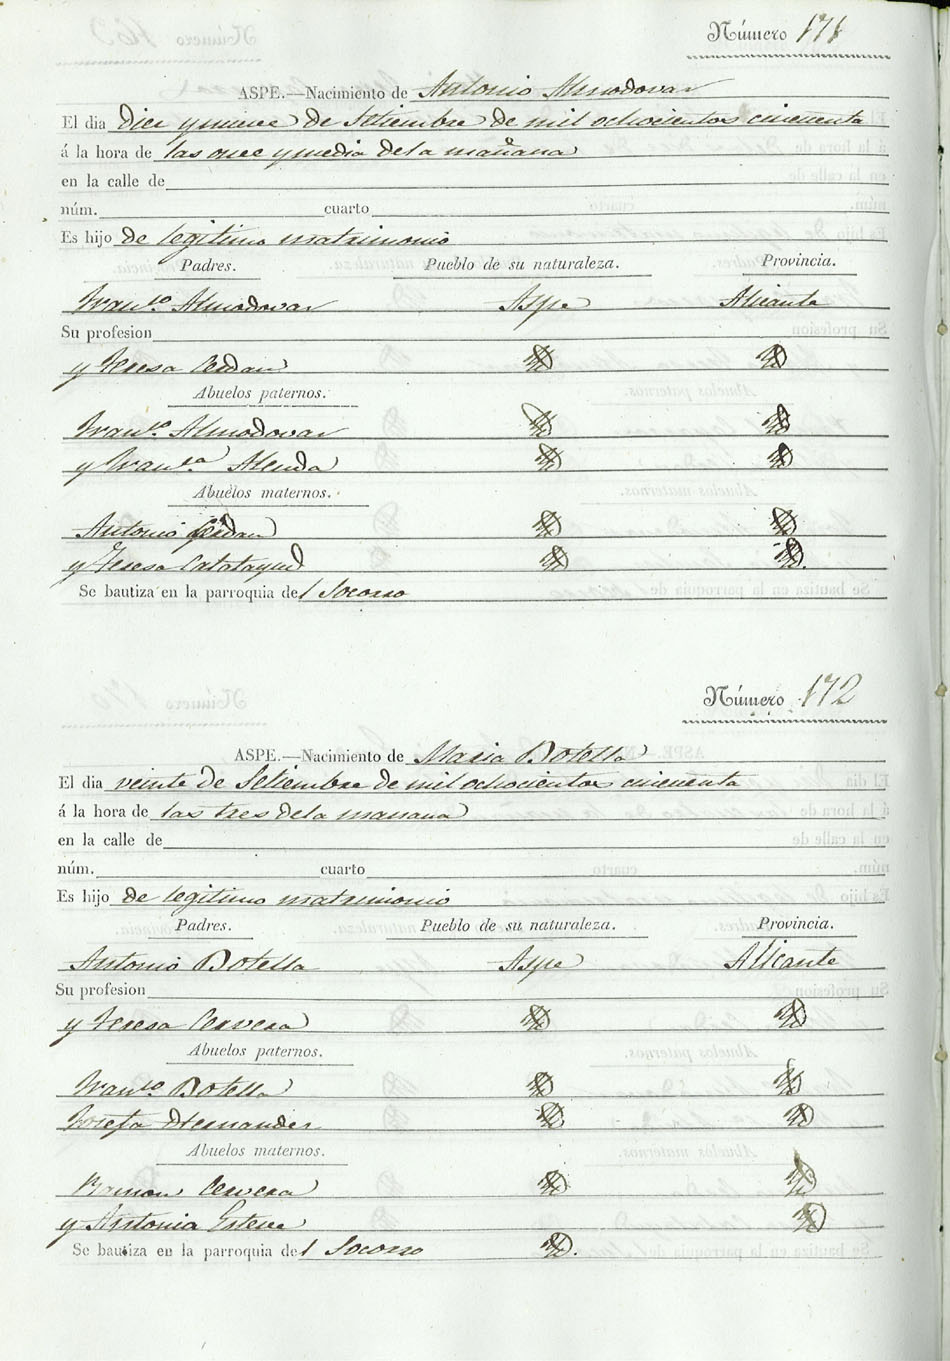 Número 171
ASPE.—Nacimiento de Antonio Almodovar
El dia diez y nueve de Setiembre de mil ochocientos cincuenta
á la hora de las once y media de la mañana
en la calle de
núm. cuarto
Es hijo de legitimo matrimonio
Padres. Pueblo de su naturaleza. Provincia.
Fran.co Almodovar Aspe Alicante
Su profesion
y Teresa Cerdan
Abuelos paternos.
Fran.co Almodovar
y Fran.ca Alenda
Abuelos maternos.
Antonio Cerdan
y Teresa Calatayud
Se bautiza en la parroquia del Socorro
Número 172
ASPE.—Nacimiento de Maria Botella
El dia veinte de Setiembre de mil ochocientos cincuenta
á la hora de las tres de la mañana
en la calle de
núm. cuarto
Es hijo de legitimo matrimonio
Padres. Pueblo de su naturaleza. Provincia.
Antonio Botella Aspe Alicante
Su profesion
y Teresa Cervera
Abuelos paternos.
Fran.co Botella
Josefa Hernandez
Abuelos maternos.
Ramon Cervera
y Antonia Esteve
Se bautiza en la parroquia del Socorro